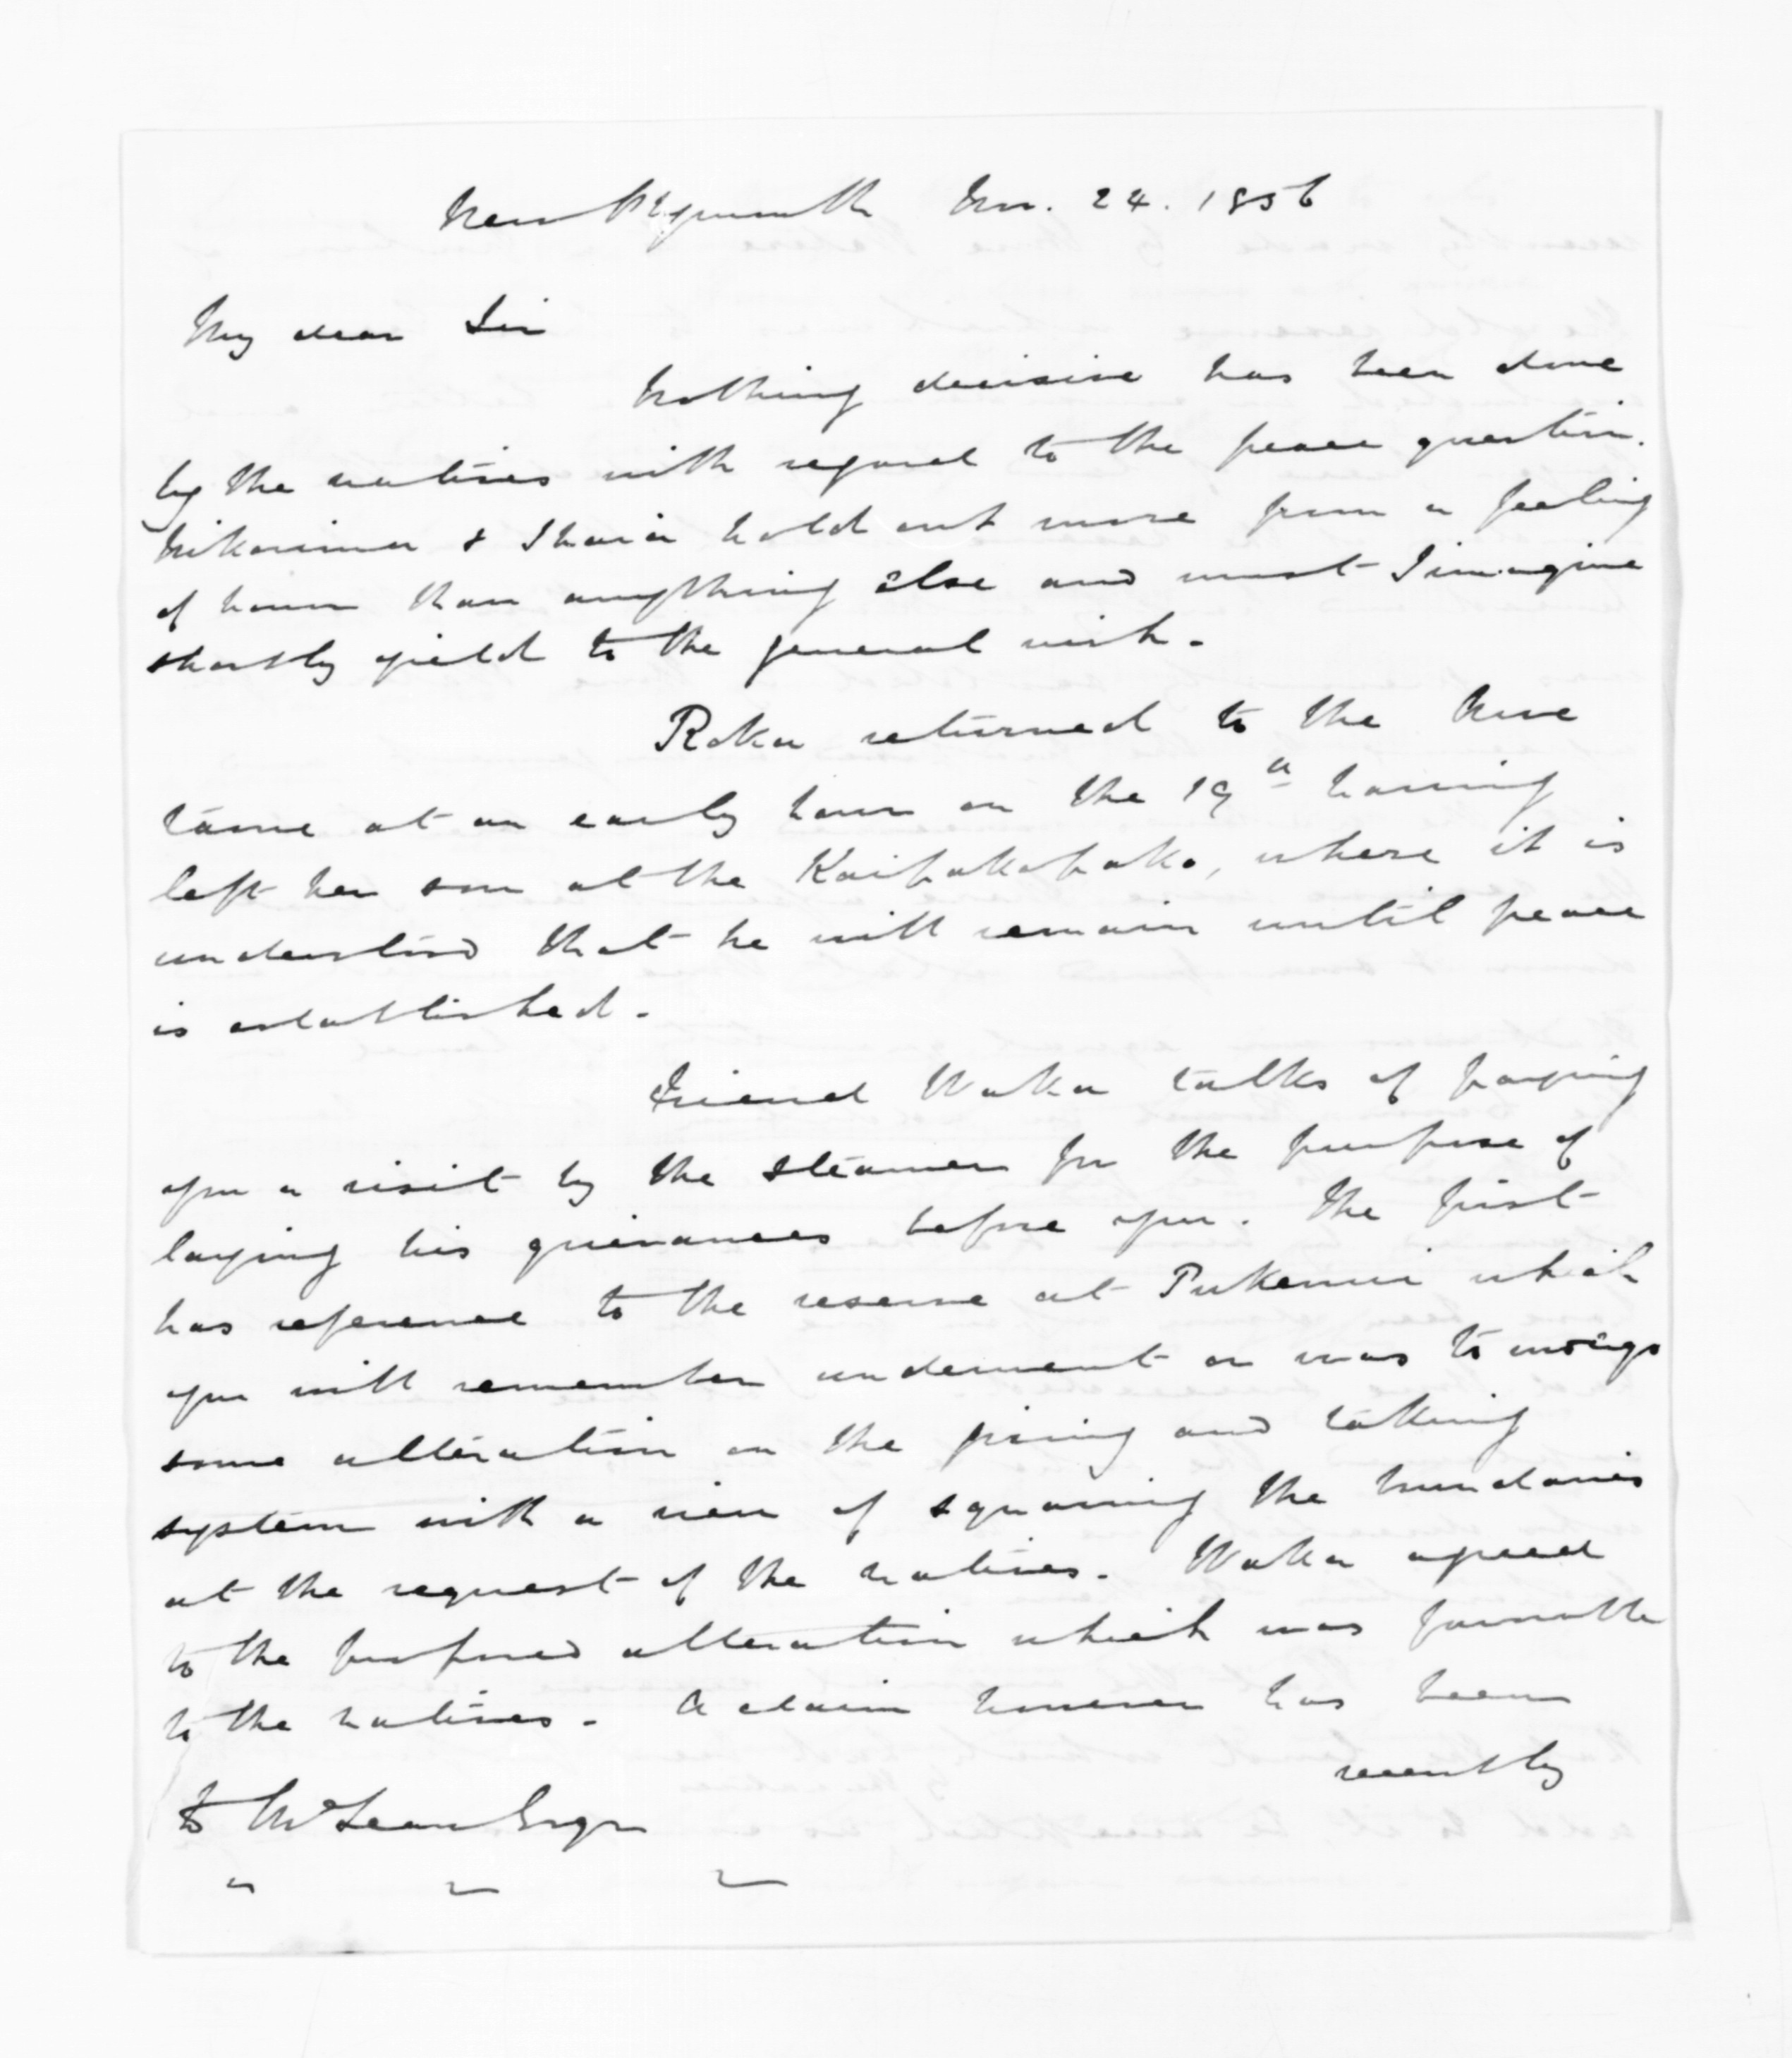 New Plymouth Nov. 24. 1856
My dear Sir
Nothing decisive has been done
by the natives with regard to the peace question.
Nikorima & Ihaia hold out more from a feeling
of honor than anything else and must I imagine
shortly yield to the general wish.
Roka returned to the
at an early hour on the 19th having
left her son at the Kaipakopako, where it is
understood that he will remain until peace
is established.
Friend Waka talks of paying
you a visit by the steamer for the purpose of
laying his grievances before you. The first
has reference to the reserve at Pukemiri which
you will remember underwent or was to undergo
some alteration on the giving and taking
system with a view of squaring the boundaries
at the request of the natives. Waka agreed
to the proposed alteration which was favourable
to the natives. A claim however has been
recently
to McLean Esqr